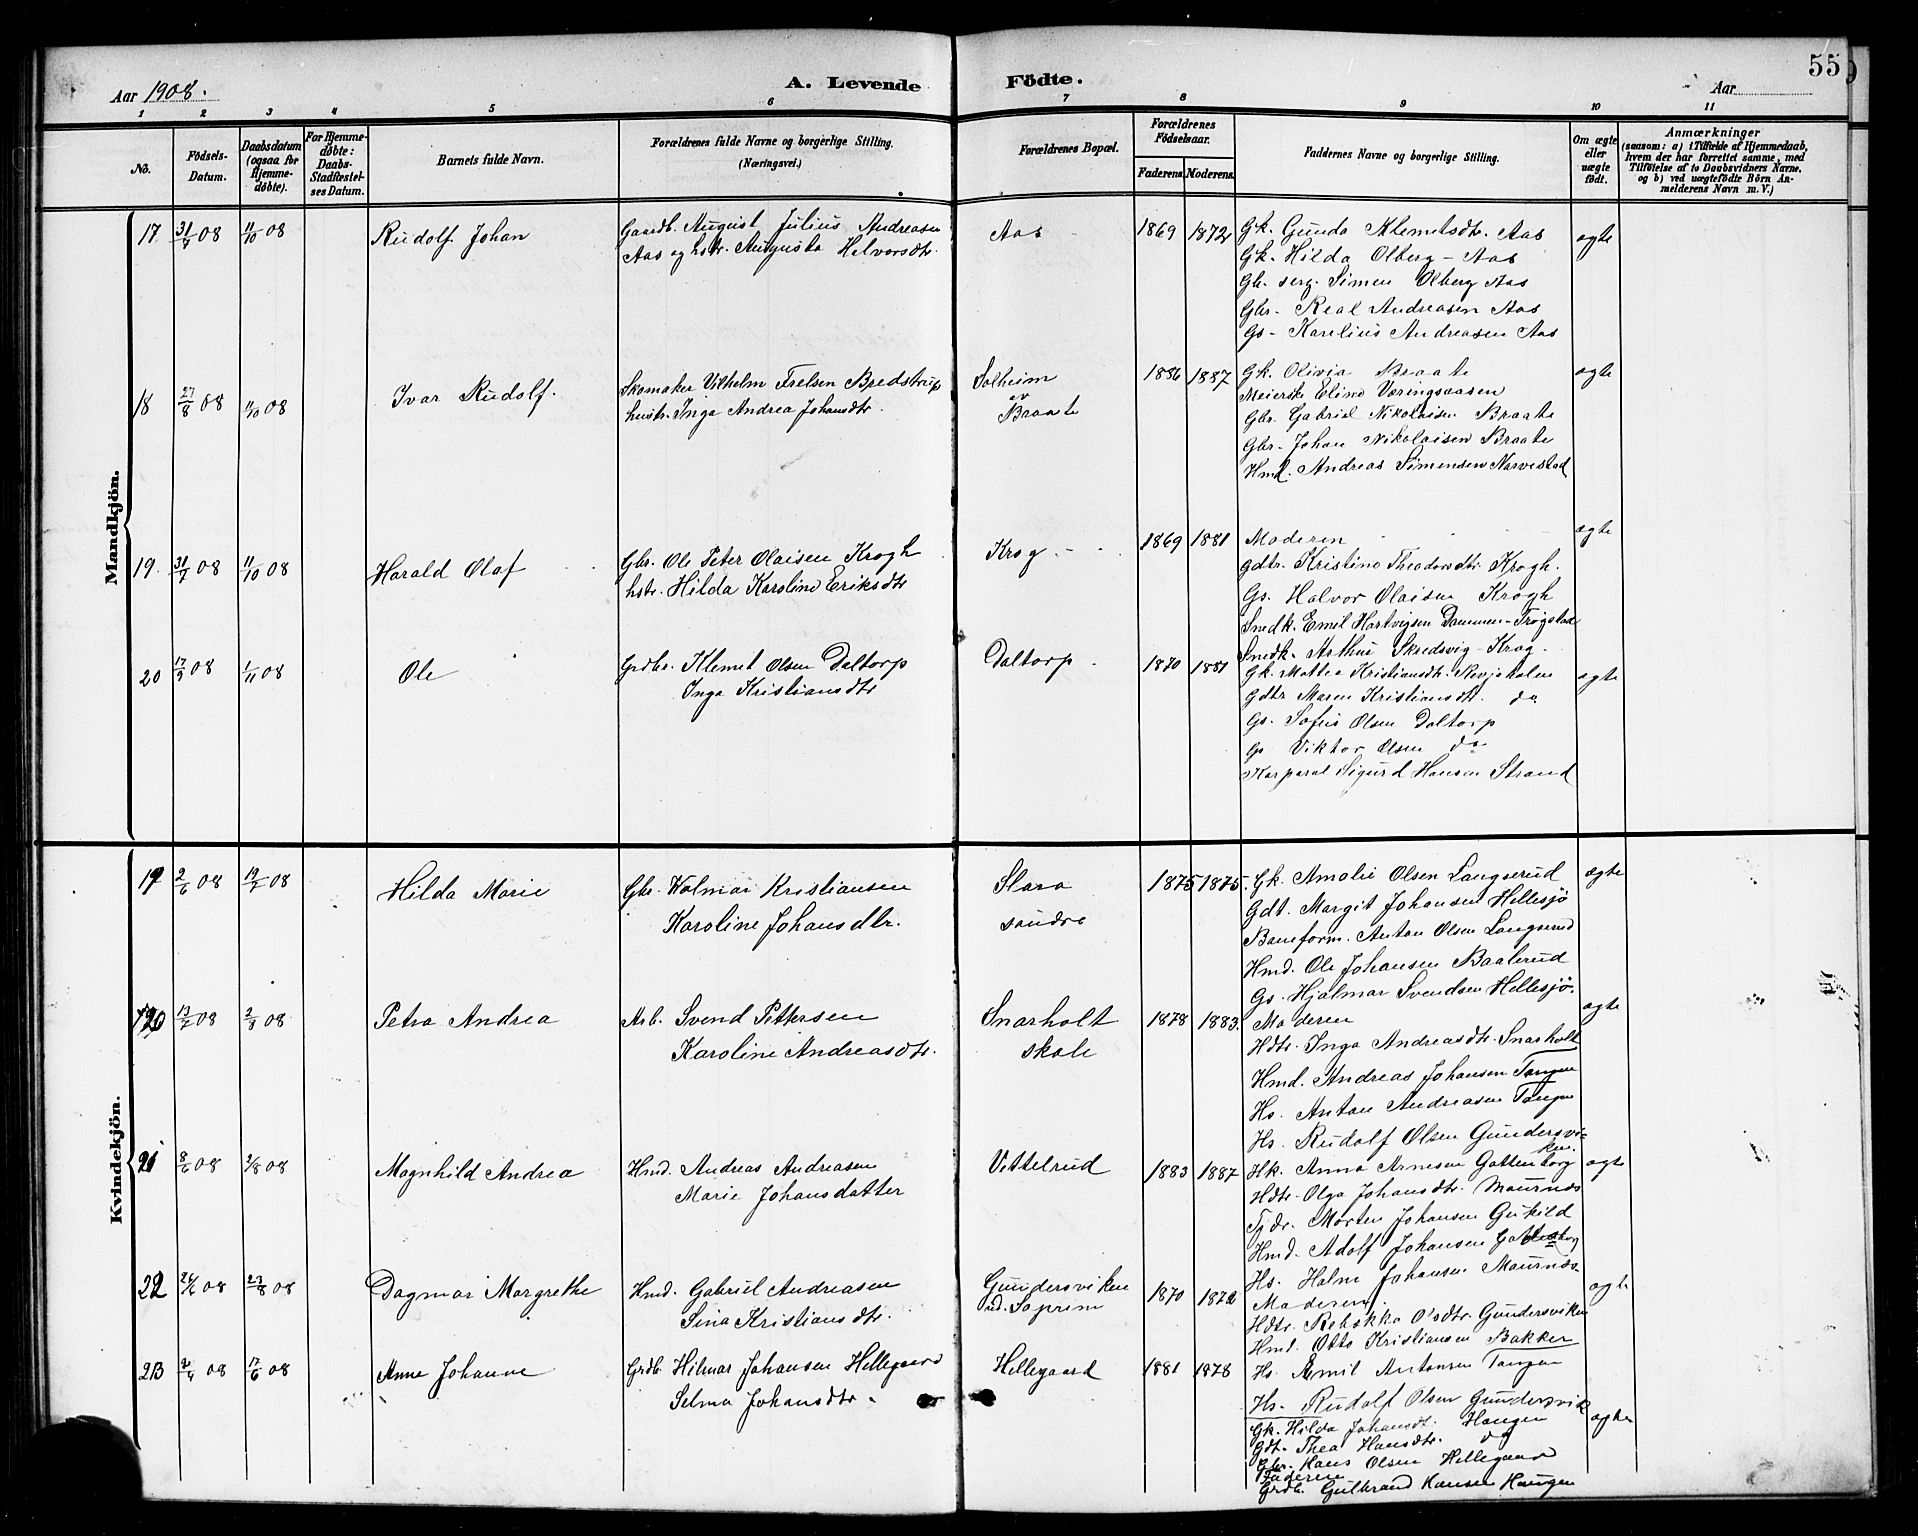 55
Aar 1908.
A. Levende Födte.
Aar
1 2 3 4 5 6 7 8 9 10 11
No.
Födsels-Datum.
Daabsdatum (ogsaa for Hjemmedöbte).
For Hjemmedöbte: Daabs-Stadfæstelses Datum.
Barnets fulde Navn.
Forældrenes fulde Navne og borgerlige Stilling. (Næringsvei.)
Forældrenes Bopæl.
Forældrenes Födselsaar.
Faderens. Moderens.
Faddernes Navne og borgerlige Stilling.
Om ægte eller uægte födt.
Anmærkninger
(saasom: a) i Tilfælde af Hjemmedaab, hvem der har forrettet samme, med Tilföielse af to Daabsvidners Navne. og b) ved uægtefödte Börn Anmelderens Navn m. V.)
Mandkjön.
17 31/7 08 11/10 08 Rudolf Johan
Gaardb. August Julius Andreasen
Aas og hstr. Augusta Helvorsdtr.
Aas 1869 1872
Gk. Gunda Klemetsdtr. Aas
Gk. Hilda Olberg - Aas
Gb. serg. Simen Olberg Aas
Gbr. Real Andreasen Aas
Gs - Karelius Andreasen Aas
ægte
18 27/8 08 11/10 08 Ivar Rudolf.
Skomaker Vilhelm Frelsen Bredstrup
hustr. Inga Andrea Johansdtr.
Solheim
av
Braate
1886 1887
Gk. Olivia Braate
Meierske Eline Væringsaasen
Gbr. Gabriel Nikolaisen Braate
Gbr. Johan Nikolaisen Braate
Hmd. Andreas Simensen Narvestad
ægte
19. 31/7 08 11/10 08 Harald Olaf
Gbr. Ole Peter Olaisen Krogh
hstr. Hilda Karoline Eriksdtr
Krog 1869 1881
Moderen
gdtr. Kristine Theodorsdtr. Krogh.
Gs. Halvor Olaisen Krogh
Snedk. Emil Hartvigsen Dammen - Trøgstad
Snedk. Arthur Skredsvig - Krog.
ægte
20 17/9 08 1/11 08 Ole
Grdbr. Klemet Olsen Daltorp
Inga Kristiansdtr
Daltorp 1870 1881
Gk. Mattea Kristiansdtr.
Gdtr Maren Kristiansdtr. do.
Gs. Sofus Olsen Daltorp
Gs Viktor Olsen do
Korporal Sigurd Hansen Strand
ægte
Kvindekjön.
19 2/6 08 19/7 08 Hilda Marie
Gbr. Kolmar Kristiansen
Karoline Johansdtr.
Slara
søndre
1875 1875.
Gk. Amalie Olsen Langserud
Gdt. Margit Johansen Hellesjö
Baneform. Anton Olsen Langserud
Hmd. Ole Johansen Baalerud
Gs. Hjalmar Svendsen Hellesjö.
ægte
20 13/7 08 2/8 08 Petra Andrea
Arb. Svend Pettersen
Karoline Andreasdtr.
Snarholt
skole
1878 1883.
Moderen
Hdtr. Inga Andreasdtr. Snarholt
Hmd. Andreas Johansen Tangen
Hs. Anton Andreasen Tangen
Hs. Rudolf Olsen Gundersvi-
ken.
ægte
21 8/6 08 2/8 08 Magnhild Andrea
Hmd. Andreas Andreasen
Marie Johansdatter
Vittelrud 1883 1887
Hk. Anna Arnesen Gottenborg
Hdtr. Olga Johansdtr. Maurnæs
Tjdr. Morten Johansen Gukild
Hmd. Adolf Johansen Gottenborg
Hs. Halm Johansen Maurnæs
ægte
22 26/6 08 23/8 08 Dagmar Margrethe
Hmd. Gabriel Andreasen
Sina Kristiansdtr.
Gundersviken
ud. Soprim
1870 1872
Moderen.
Hdtr. Rebekka Olsdtr. Gundersviken
Hmd. Otto Kristiansen Bakker
Hs. Emil Antonsen Tangen
Hs. Rudolf Olsen Gundersvik
ægte
23 2/4 08 17/6 08 Anne Johanne
Grdb. Hilmar Johansen Hellegaard
Selma Johansdtr.
Hellegaard 1881 1878
Gk. Hilda Johansdt. Haugen
Gdt. Thea Hansdtr. do
Gbr. Hans Olsen Hellegaard
Faderen
Grdb. Gulbrand Hansen Haugen
ægte